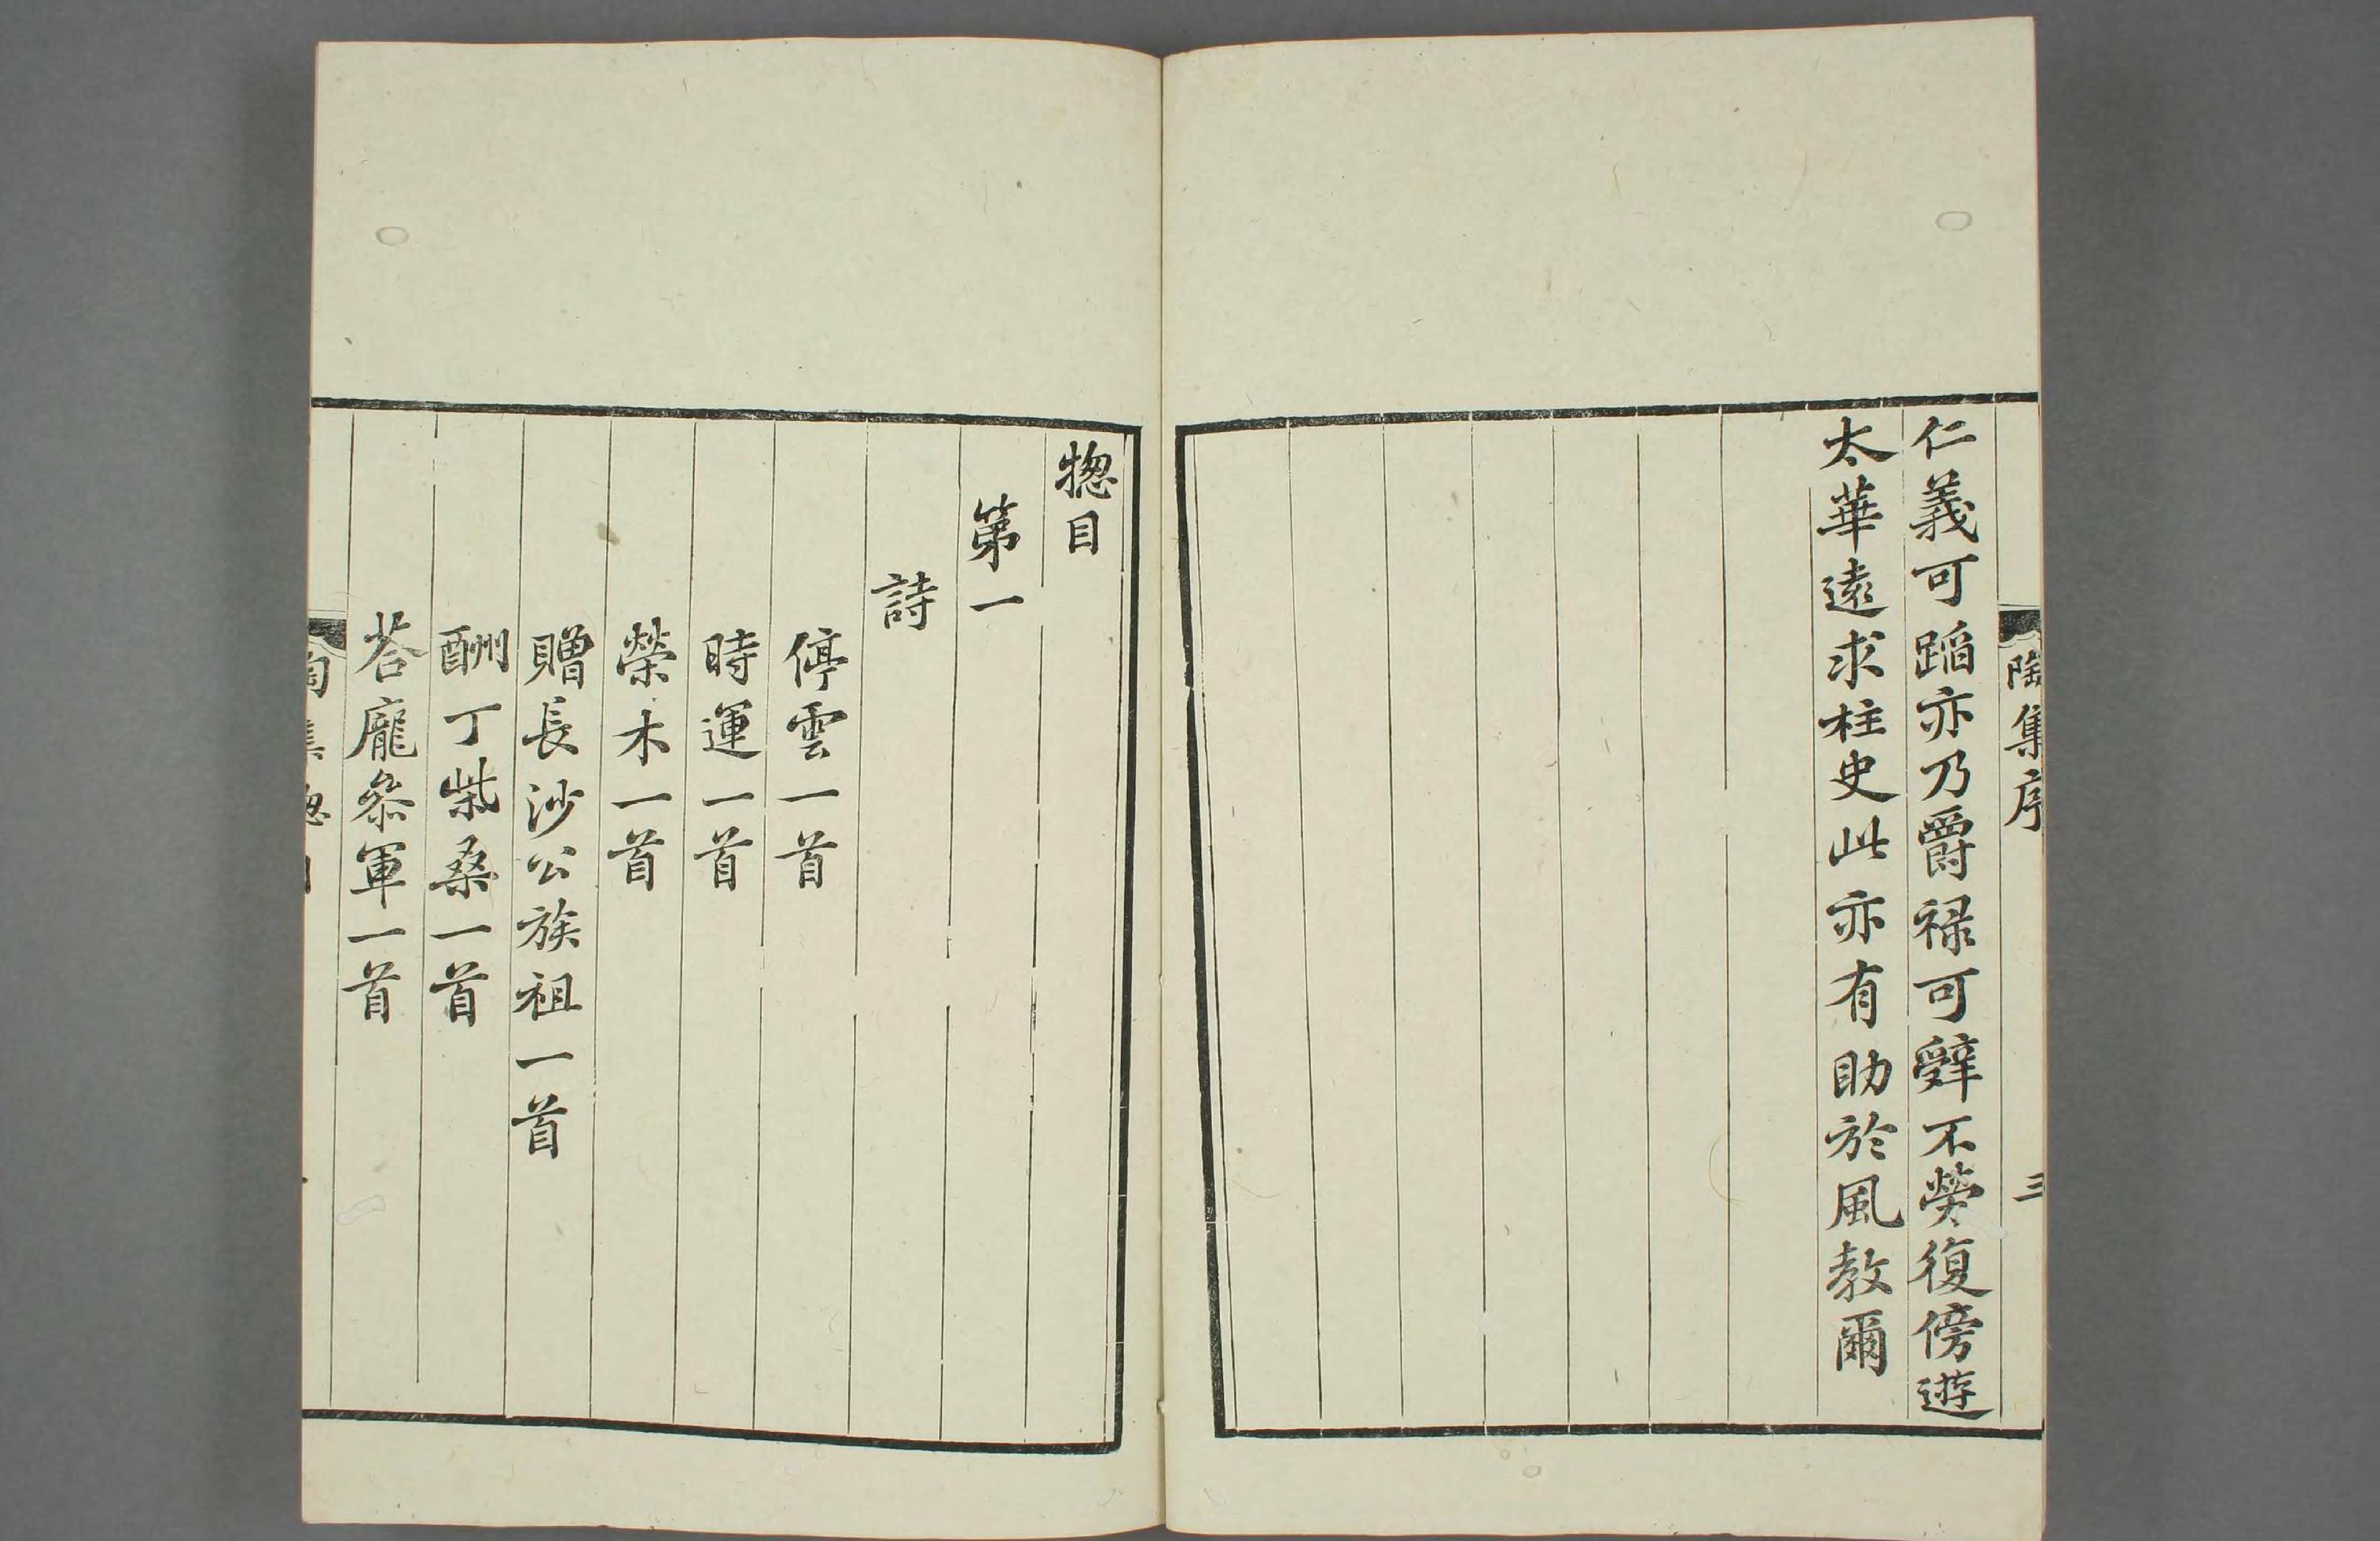 陶集序 三
仁義可蹈亦乃爵禄可辤不勞復傍遊
太華遠求柱史此亦有助於風教爾
揔目
第一
詩
停雲一首
時運一首
榮木一首
贈長沙公族祖一首
酬丁柴桑一首
荅龐叅軍一首
陶集揔目